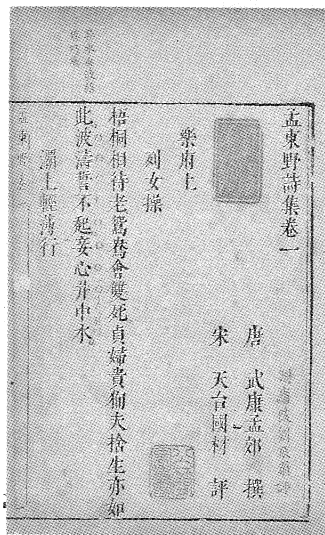 孟東野詩集卷一
唐 武康孟郊 撰
宋 天台國材 評
樂府上
列女操
梧桐相待老鴛鴦會雙死貞婦貴徇夫捨生亦如
此波濤誓不起妾心井中水
灞上輕薄行